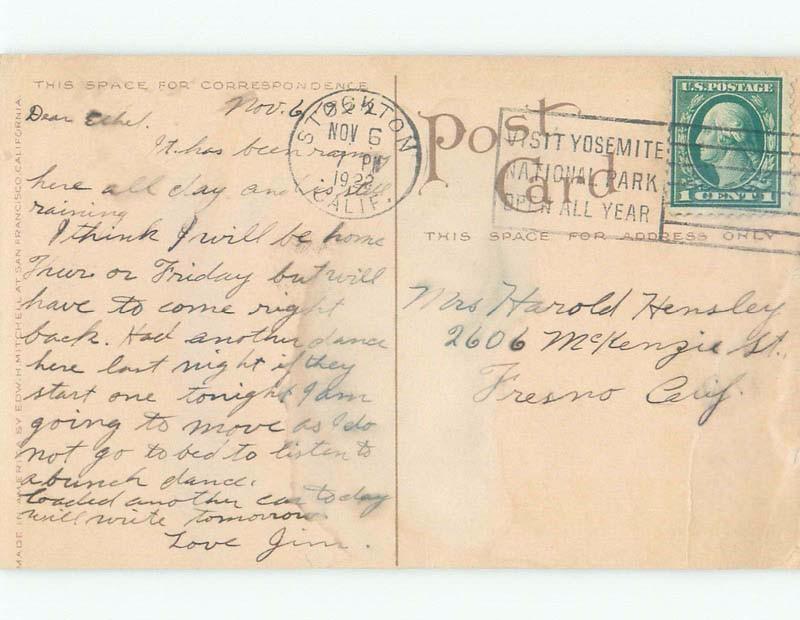 THIS SPACE FOR CORRESPONDENCE
Nov. 6/1922
Dear Ethel.
It has been raining
here all day and is still
raining
I think I will be home
Thur or Friday but will
have to come right
back. Had another dance
here last night if they
start one tonight I am
going to move as I do
not go to bed to listen to
a bunch dance.
loaded another car today
will write tomorrow
Love Jim.
MADE IN AMERICA BY EDW. H. MITCHELL AT SAN FRANCISCO, CALIFORNIA
STOCKTON
NOV 6
PM
1922
CALIF.
Post
Card
VISIT YOSEMITE
NATIONAL PARK
OPEN ALL YEAR
U.S. POSTAGE
1 CENT 1
THIS SPACE FOR ADDRESS ONLY
Mrs Harold Hensley
2606 McKenzie St.
Fresno Calif.